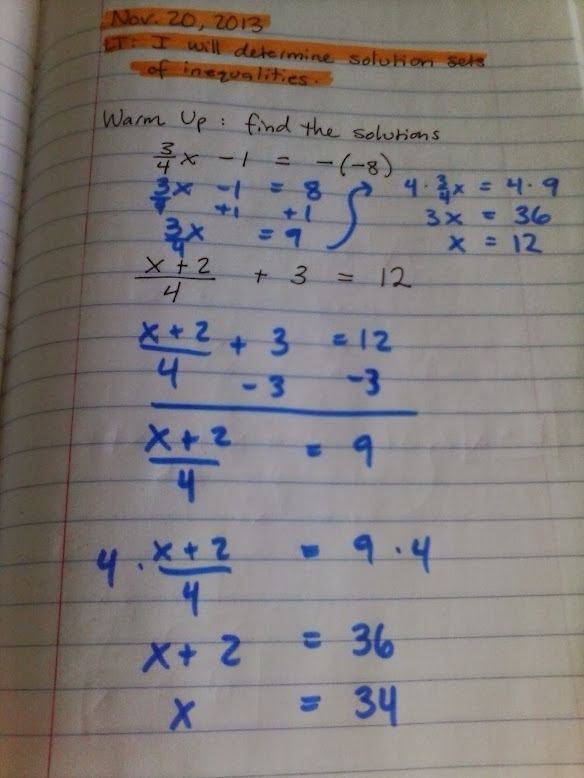 Nov. 20, 2013
LT: I will determine solution sets
of inequalities.
Warm Up: find the solutions
3/4 x - 1 = -(-8)
3/4 x - 1 = 8
+1 +1
3/4 x = 9
4 · 3/4 x = 4 · 9
3x = 36
x = 12
x + 2 / 4 + 3 = 12
x + 2 / 4 + 3 = 12
-3 -3
x + 2 / 4 = 9
4 · x + 2 / 4 = 9 · 4
x + 2 = 36
x = 34